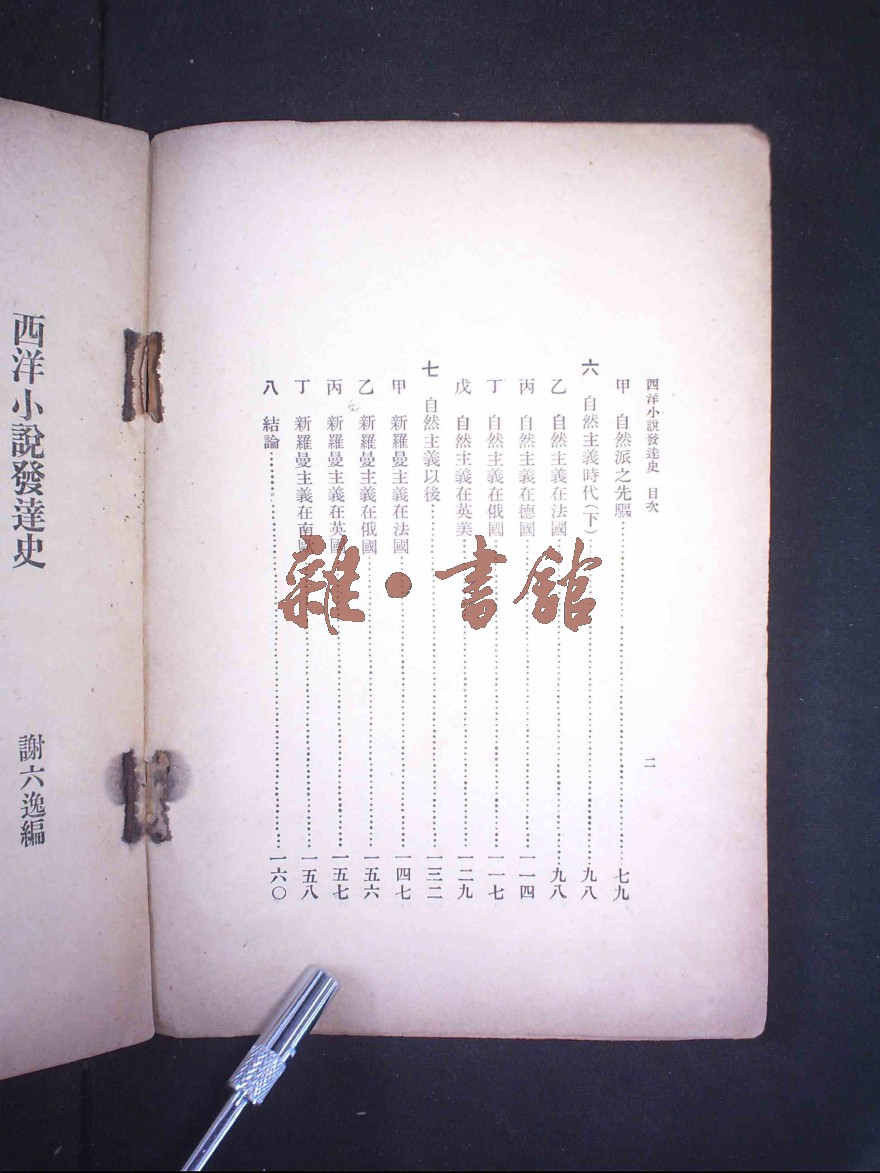 西洋小說發達史 目次
二
甲 自然派之先驅……七九
六 自然主義時代(下)……九八
乙 自然主義在法國……九八
丙 自然主義在德國……一一四
丁 自然主義在俄國……一一七
戊 自然主義在英美……一二九
七 自然主義以後……一三二
甲 新羅曼主義在法國……一四七
乙 新羅曼主義在俄國……一五六
丙 新羅曼主義在英國……一五七
丁 新羅曼主義在南歐……一五八
八 結論……一六〇
西洋小說發達史
謝六逸編
雜·書館